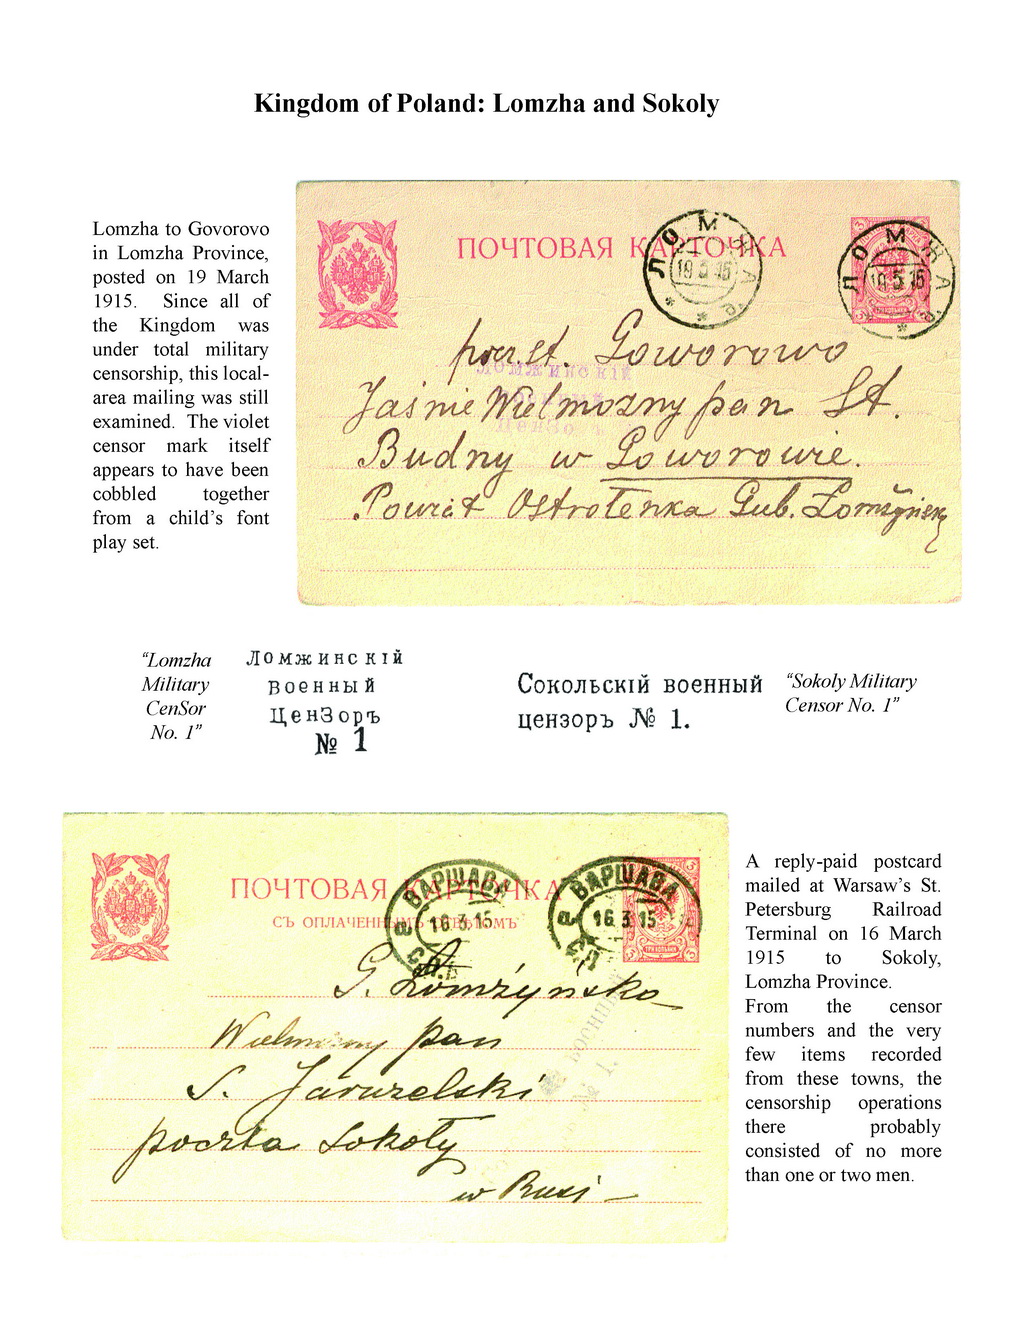 Kingdom of Poland: Lomzha and Sokoly
Lomzha to Govorovo
in Lomzha Province,
posted on 19 March
1915. Since all of
the Kingdom was
under total military
censorship, this local-
area mailing was still
examined. The violet
censor mark itself
appears to have been
cobbled together
from a child's font
play set.
ПОЧТОВАЯ КАРТОЧКА
ЛОМЖА
ЛОМЖА
Ломжинскій
pocz. st. Goworowo
Jaśnie Wielmożny pan St.
Budny w Goworowie.
Powiat Ostrołenka Gub. Łomżyńsk
"Lomzha
Military
CenSor
No. 1"
Ломжинскій
Военный
ЦенЗоръ
№ 1
Сокольскій военный
цензоръ № 1.
"Sokoly Military
Censor No. 1"
ПОЧТОВАЯ КАРТОЧКА
СЪ ОПЛАЧЕННЫМЪ ОТВѢТОМЪ
ВАРШАВА
16.3.15
ВАРШАВА
16.3.15
G. Łomżyńska
Wielmożny pan
S. Jaruzelski
poczta Sokoły
w Rusi
военный
№ 1.
A reply-paid postcard
mailed at Warsaw's St.
Petersburg Railroad
Terminal on 16 March
1915 to Sokoly,
Lomzha Province.
From the censor
numbers and the very
few items recorded
from these towns, the
censorship operations
there probably
consisted of no more
than one or two men.